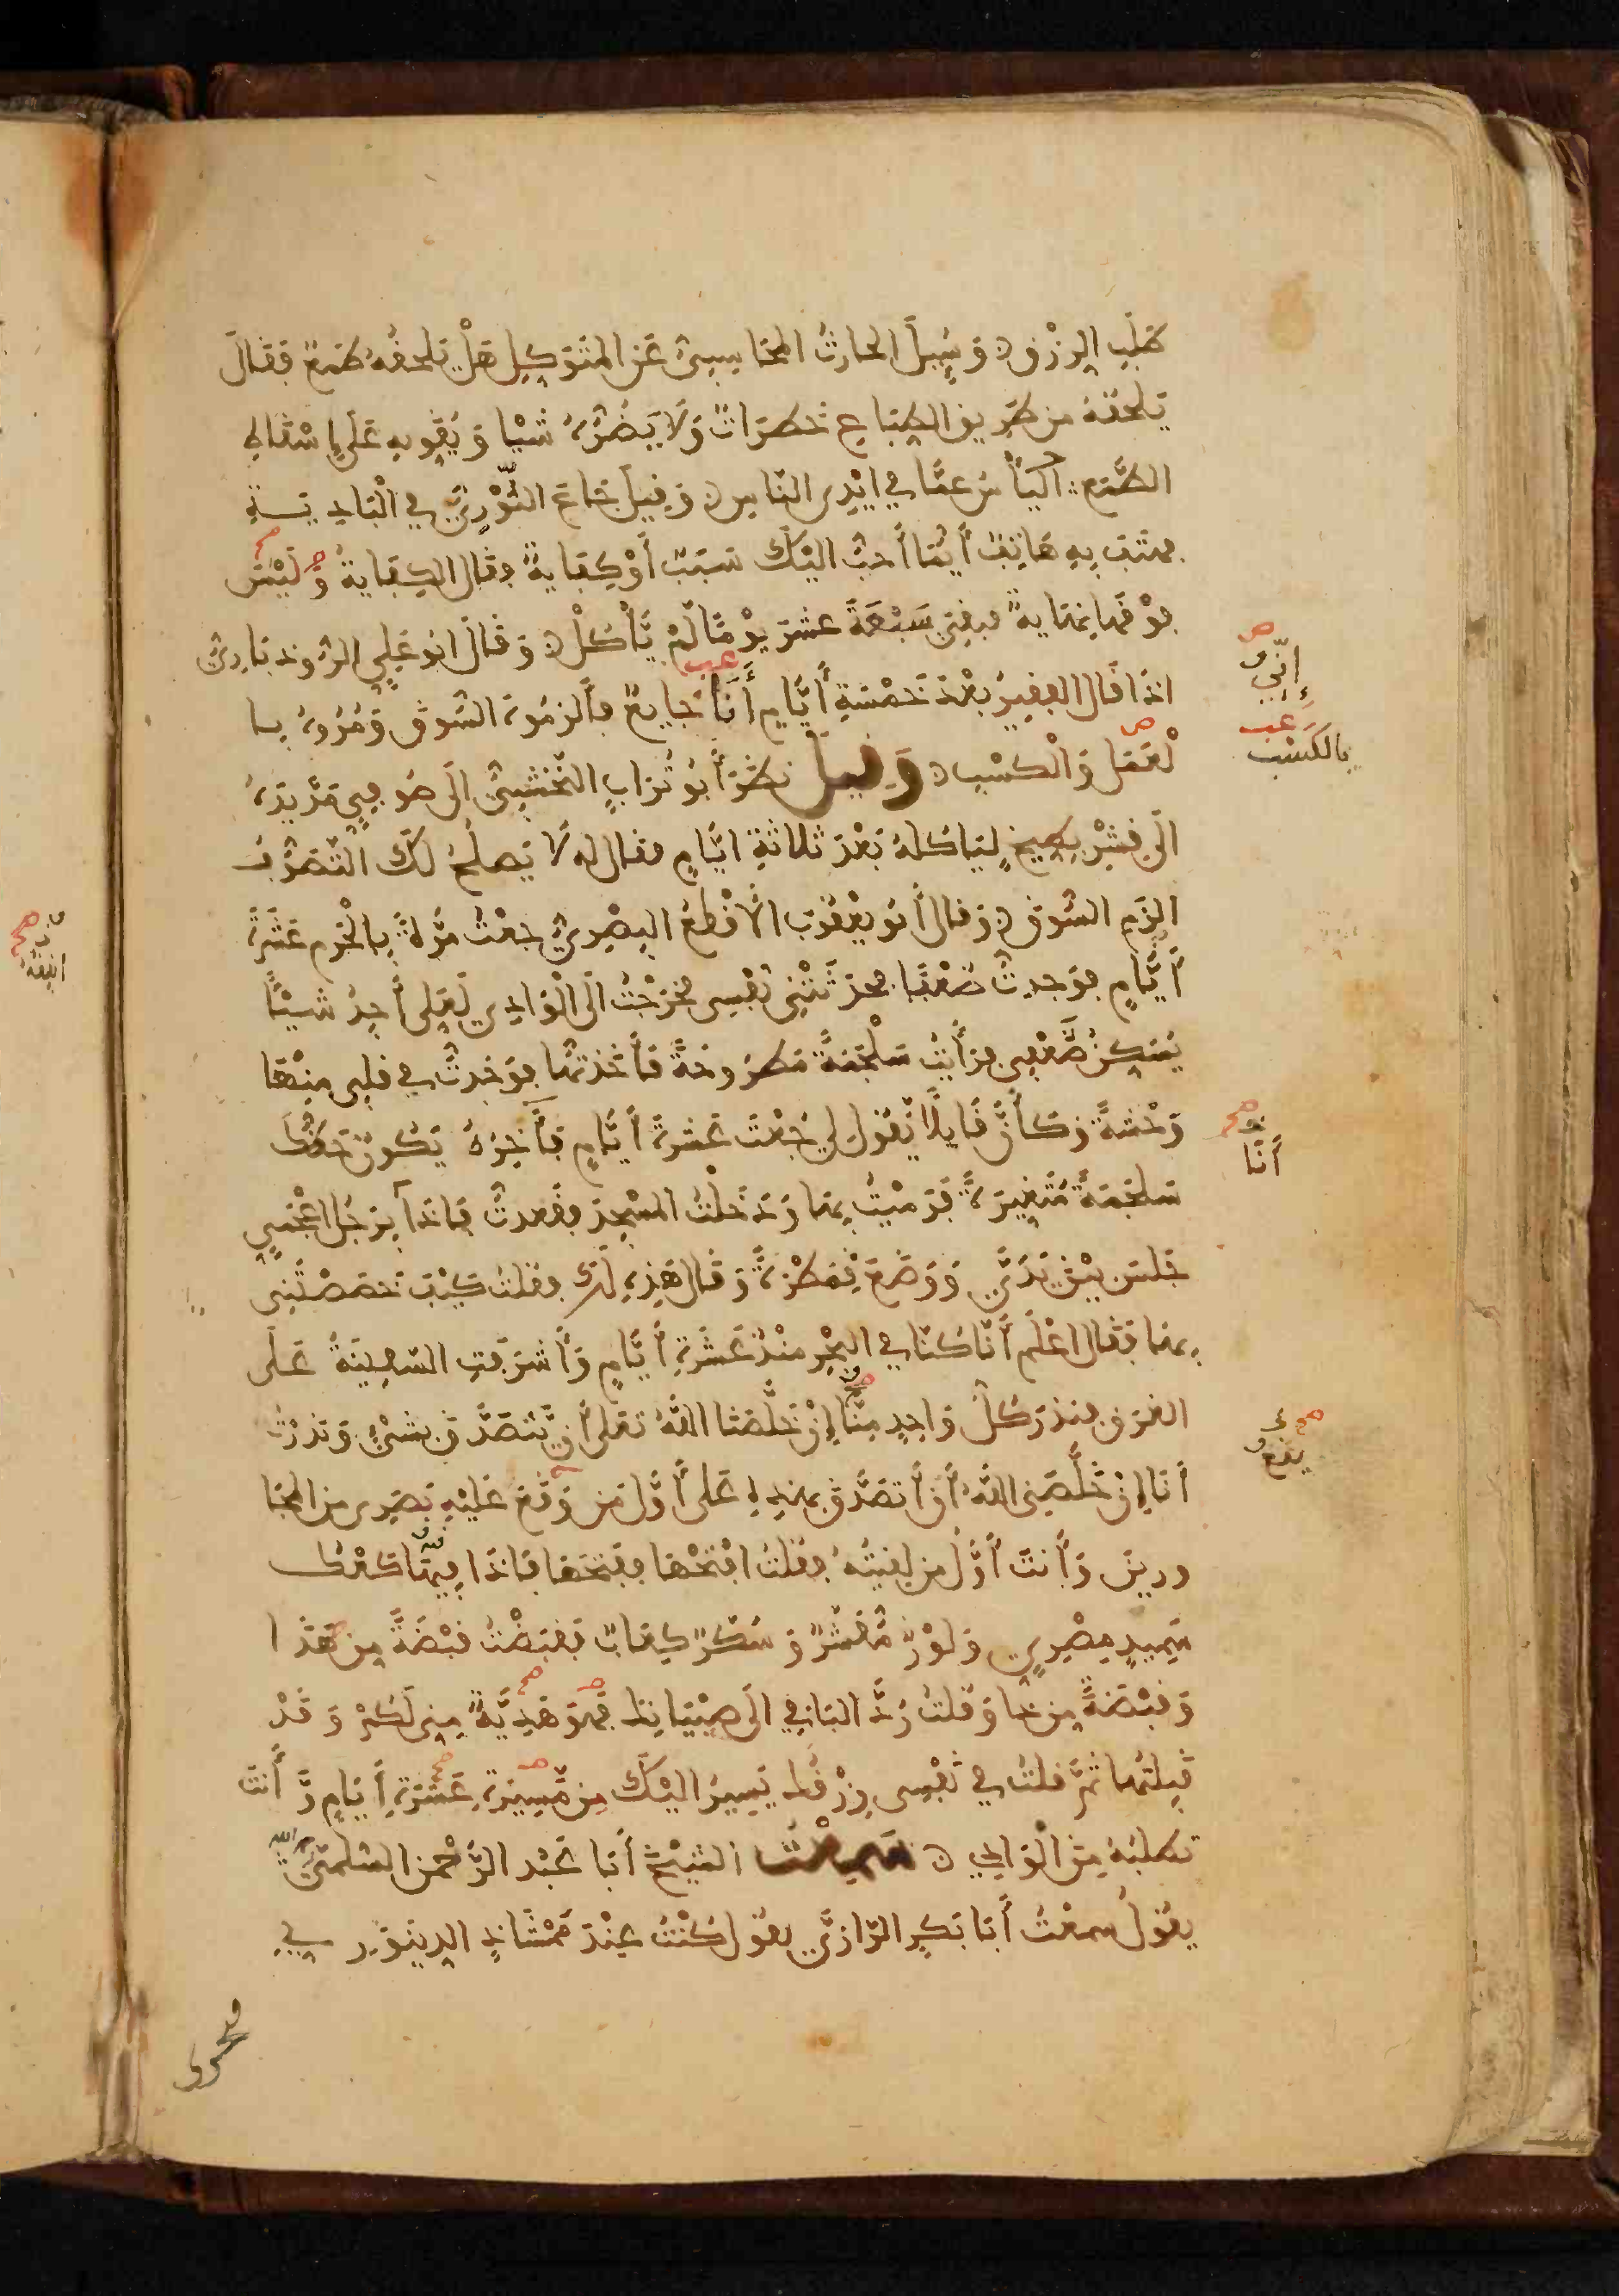 طَلَبِ الرِّزْقِ وَسُئِلَ الحارثُ المحَاسِبِيُّ عَنِ المتَوَكِّلِ هَلْ يَلحقُهُ طَمَعٌ فَقَالَ
يَلحقُهُ من طَرِيقِ الطِّبَاعِ خَطَرَاتٌ وَلَا يَضُرُّهُ شَيْا وَيُقَوِّيهِ عَلَى إِسْقَاطِ
الطَّمَعِ اليَأْسُ عمَّا في ايْدِى النَّاسِ وَقِيلَ جَاعَ النُّوْرِيُّ في الْبَادِيَةِ
فهتَفَ بِهِ هَاتِفٌ أَيُّمَا أَحَبُّ اليْكَ سَبَبٌ أَوْ كِفَايةٌ فقَالَ الكِفَايةُ وَلَيْسَ
فَوْقَهَا نِهَايةٌ فبقِيَ سَبْعَةَ عشَرَ يوْمًا لَمْ يَأْكُلْ وَقَالَ ابُو عَلِيٍّ الرُّوذبَارِيُّ
اذَا قَالَ الفقِيرُ بعْدَ خَمْسَةِ أَيَّامٍ أَنَا جَايعٌ فأَلزِمُوهُ السُّوقَ وَمُرُوهُ بـا
لْعَمَلِ وَالْكسْبِ وَقِيلَ نظَرَ أَبُو تُرَابٍ النَّخْشَبِيُّ الَى صُوفِيٍّ مَدَّ يَدَهُ
الَى قِشْرِ بِطِيخٍ لِيَاكلهُ بَعْدَ ثلاثَةِ ايَّامٍ فقال له لَا يَصلحُ لكَ التَّصَوُّف
الزَمِ السُّوقَ وَقال أَبو يعْقُوبَ الأَقْطعُ البِصْرِيُّ جعْتُ مَرَّةً بِالْحَرمِ عَشَرَةَ
أَيَّامٍ فوَجدتُ ضَعْفًا فحدَّثَتْنِى نَفْسِى فخرَجْتُ الَى الْوَادِي لَعَلِى أَجِدُ شَيْئًا
يُسَكِّنُ ضَعْفِى فرَأَيْتُ سَلْجَمَةً مَطرُوحَةً فَأَخَذتُهَا فوَجَدتُ في قلبِى مِنْهَا
وَحْشَةً وَكَأَنَّ قَايلًا يَقُولُ لِي جُعْتَ عَشرةَ أَيَّامٍ فَآخِرُهُ يَكُونُ حَظُّكَ
سَلجَمَةً مُتَغَيِّرَةً فَرَمَيْتُ بِهَا وَدَخَلْتُ المسْجِدَ فقَعدتُ فَاذَا بِرَجُلٍ اعْجَمِيٍّ
جَلسَ بيْنَ يَدَيَّ وَوَضَعَ قِمَطْرَةً وَقَالَ هَذِهِ لَكَ فقلتُ كَيْفَ خَصَصْتَنِى
بِهَا فَقَالَ اعْلَم أَنَّا كُنَّا في البَحْرِ منْذُ عَشَرَةِ أَيَّامٍ وَأَشرَفَتِ السَّفِينَةُ عَلَى
الغرَقِ فنذرَ كُلُّ وَاحِدٍ مِنَّا إِنْ خَلَّصَنَا اللَّهُ تعَلَى أَن يَتَصَدَّقَ بشَيْءٍ وَنذرْتُ
أَنَا إِنْ خَلَّصَنِى اللَّهُ أَنْ أَتَصَدَّقَ بهذِهِ عَلَى أَوَّلِ مَن وَقَعَ عَلَيْهِ بَصَرِى من المجَا
ورينَ وَأَنتَ أَوَّلُ من لقِيتُهُ فقلتُ افْتَحْهَا ففَتَحَهَا فَاذَا فِيهَا كَعْكُ
سَمِيدٍ مِصْرِيٍّ وَلَوْزٌ مُقَشَّرٌ وَسُكَّرٌ كِعَابٌ فَقبَضْتُ قبْضَةً مِن هَذَا
وَقبْضَةً مِن ذا وَقُلتُ رُدَّ البَاقِي الَى صِبْيَانِكَ فَهُوَ هَدِيَّةٌ مِنِى لَكُمْ وَقَدْ
قَبِلتُهَا ثمَّ قلتُ في نَفْسِى رِزْقُكَ يَسِيرُ اليْكَ مِن مَسِيرَةِ عَشَرَةِ أَيَامٍ وَأَنتَ
تطلبُهُ مِنَ الْوَادِي سَمِعْتُ الشَيْخَ أَبَا عَبْد الرَّحْمنِ السُّلَمِيَّ
يقُولُ سمعْتُ أَبَا بَكرٍ الرَّازيَّ يقُولُ كُنْتُ عِنْدَ مَمْشَاذٍ الدِينَوَرِي
إِنِّى
بِالكَسْبِ
أَنَا
يقع